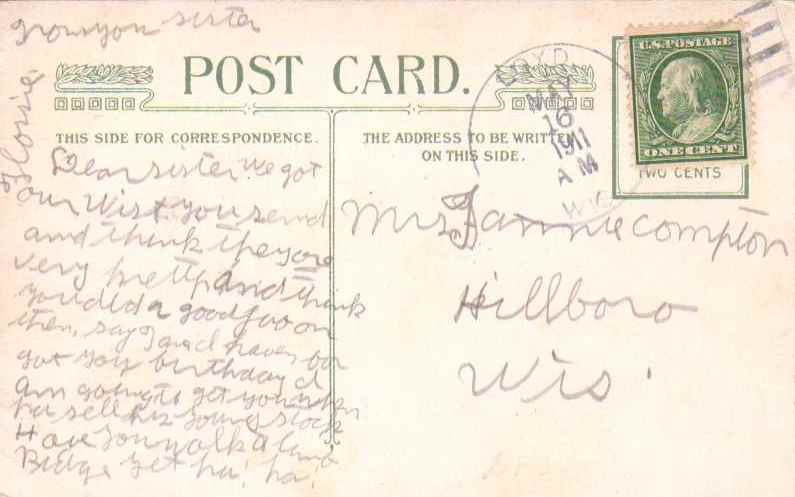 from you sister
Florie.
POST CARD.
THIS SIDE FOR CORRESPONDENCE.
Dear sister we got
our Wist you send
and think they are
very pretty and think
you did a good joo on
them, say I and haven
got you birthday d
am going to get you when
sell his young stock
Have you walk a
Bridge yet ha! ha!
THE ADDRESS TO BE WRITTEN
ON THIS SIDE.
Mrs Fannie Compton
Hillboro
Wis.
BOYD
MAY
16
1911
A M
WIS
U.S. POSTAGE
ONE CENT
TWO CENTS